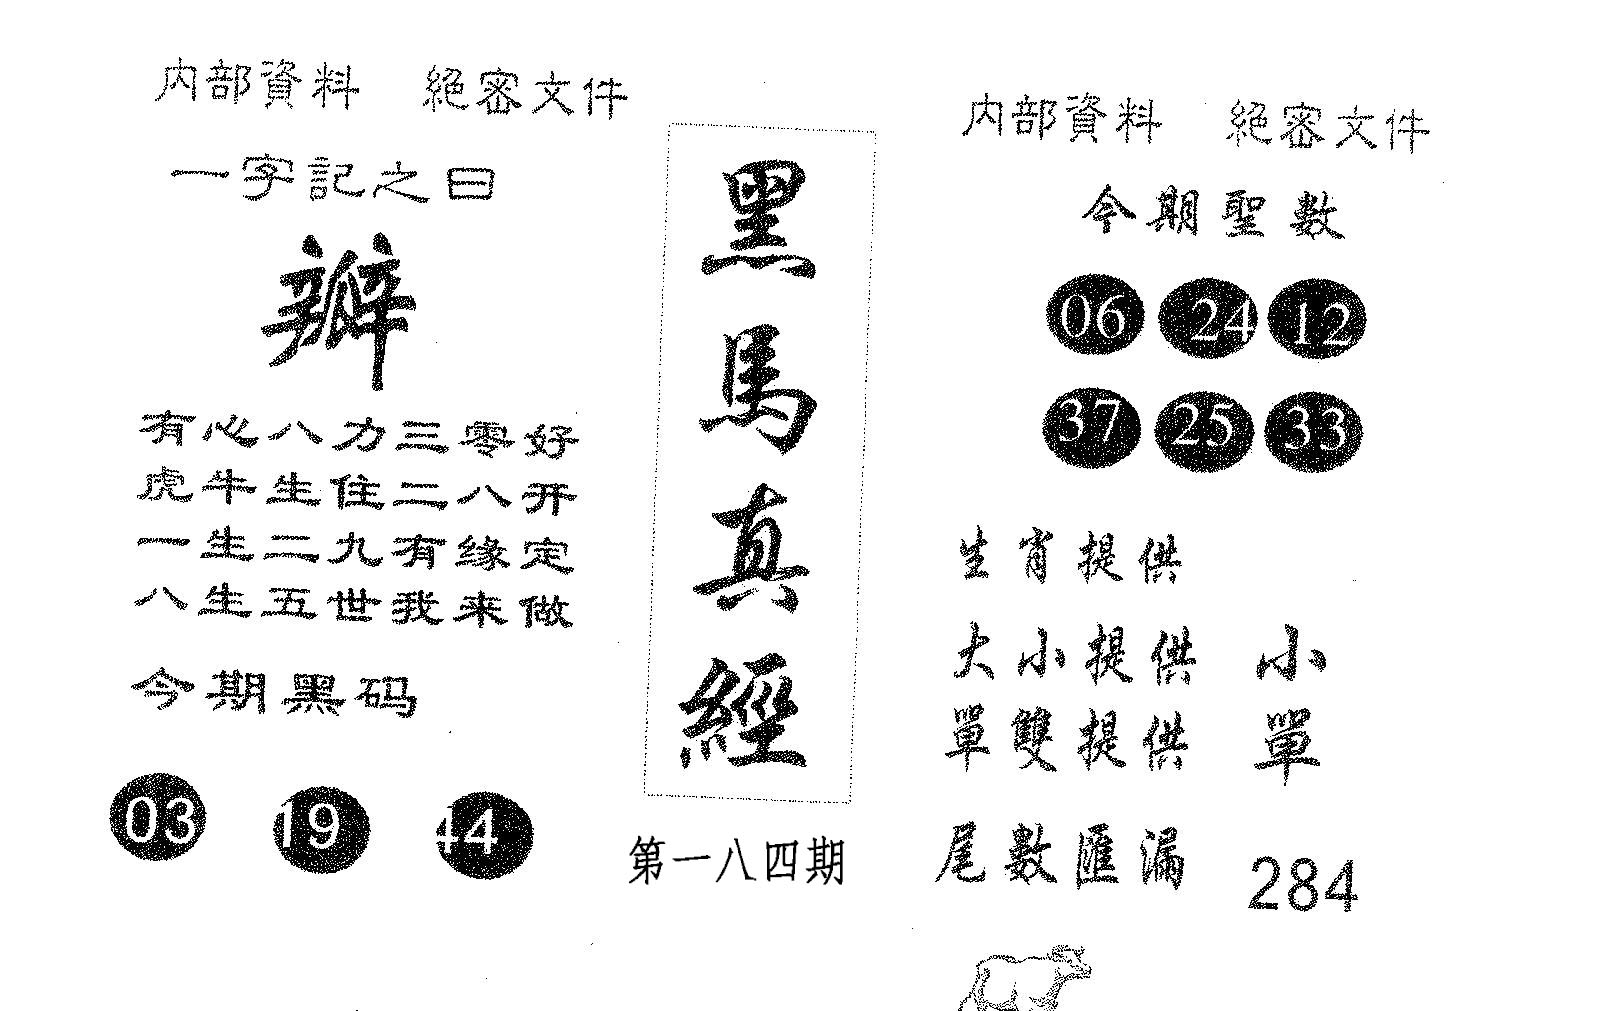 内部資料 絕密文件
一字記之曰
瓣
有心八力三零好
虎牛生住二八开
一生二九有缘定
八生五世我来做
今期黑码
03 19 44
黑馬真經
第一八四期
内部資料 絕密文件
今期聖數
06 24 12
37 25 33
生肖提供
大小提供 小
單雙提供 單
尾數匯漏 284